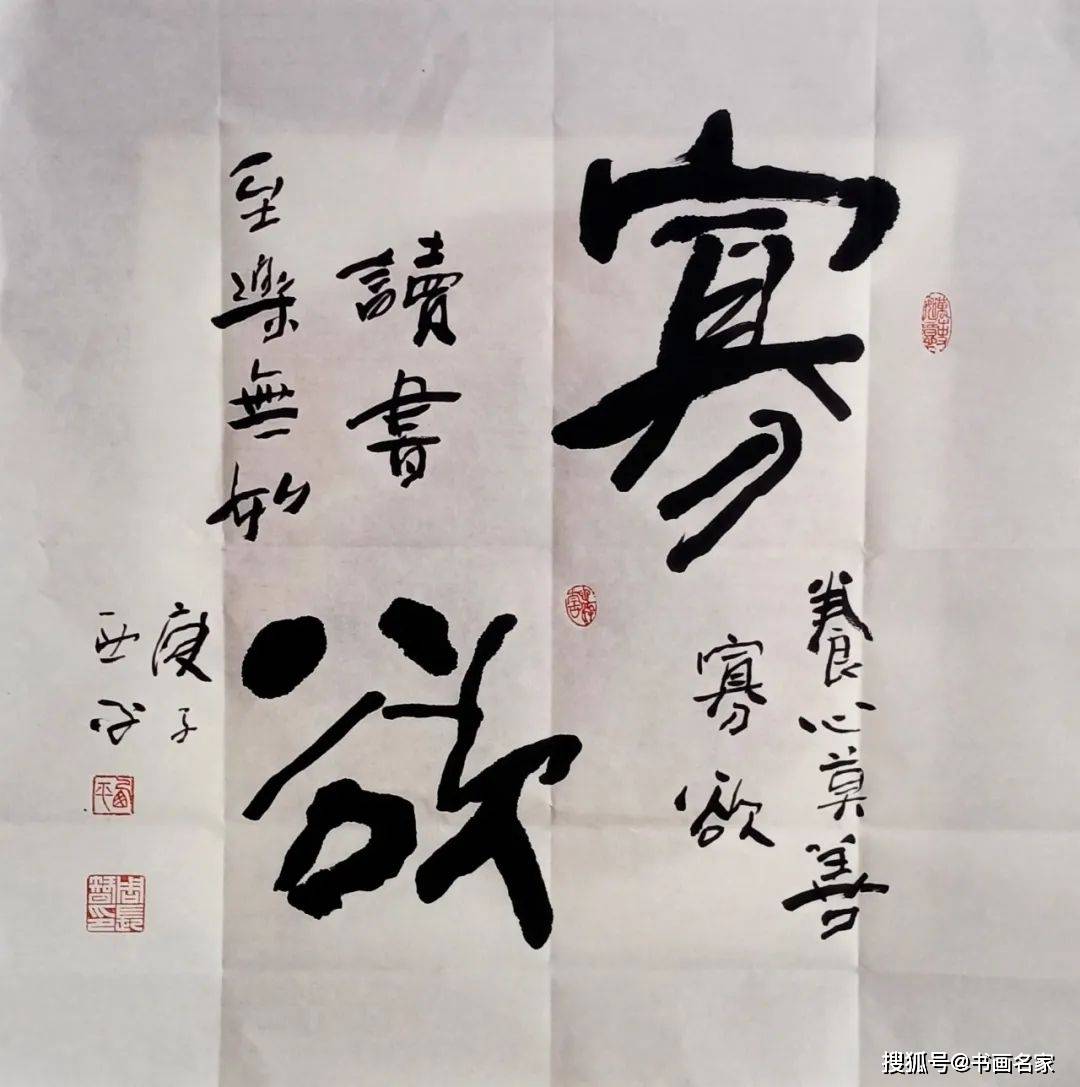 寡
欲
養心莫善
寡欲
讀書
至樂無如
庚子
西平
西平
搜狐号@书画名家